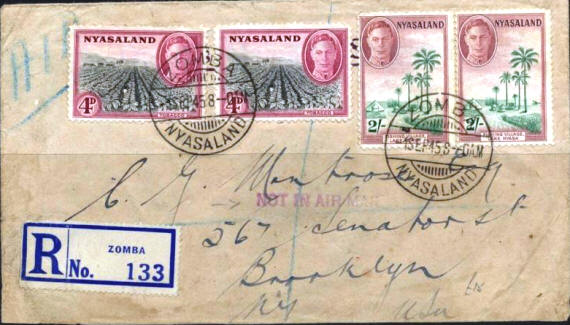 AIR
NYASALAND
4D
TOBACCO
NYASALAND
4D
TOBACCO
NYASALAND
2/-
FISHING VILLAGE,
LAKE NYASA
NYASALAND
2/-
FISHING VILLAGE,
LAKE NYASA
ZOMBA
1SEP45.8-0AM
NYASALAND
ZOMBA
1SEP45.8-0AM
NYASALAND
C. G. Montross
NOT IN AIR MAIL
567 Senator St
Brooklyn
NY USA
R ZOMBA
No. 133